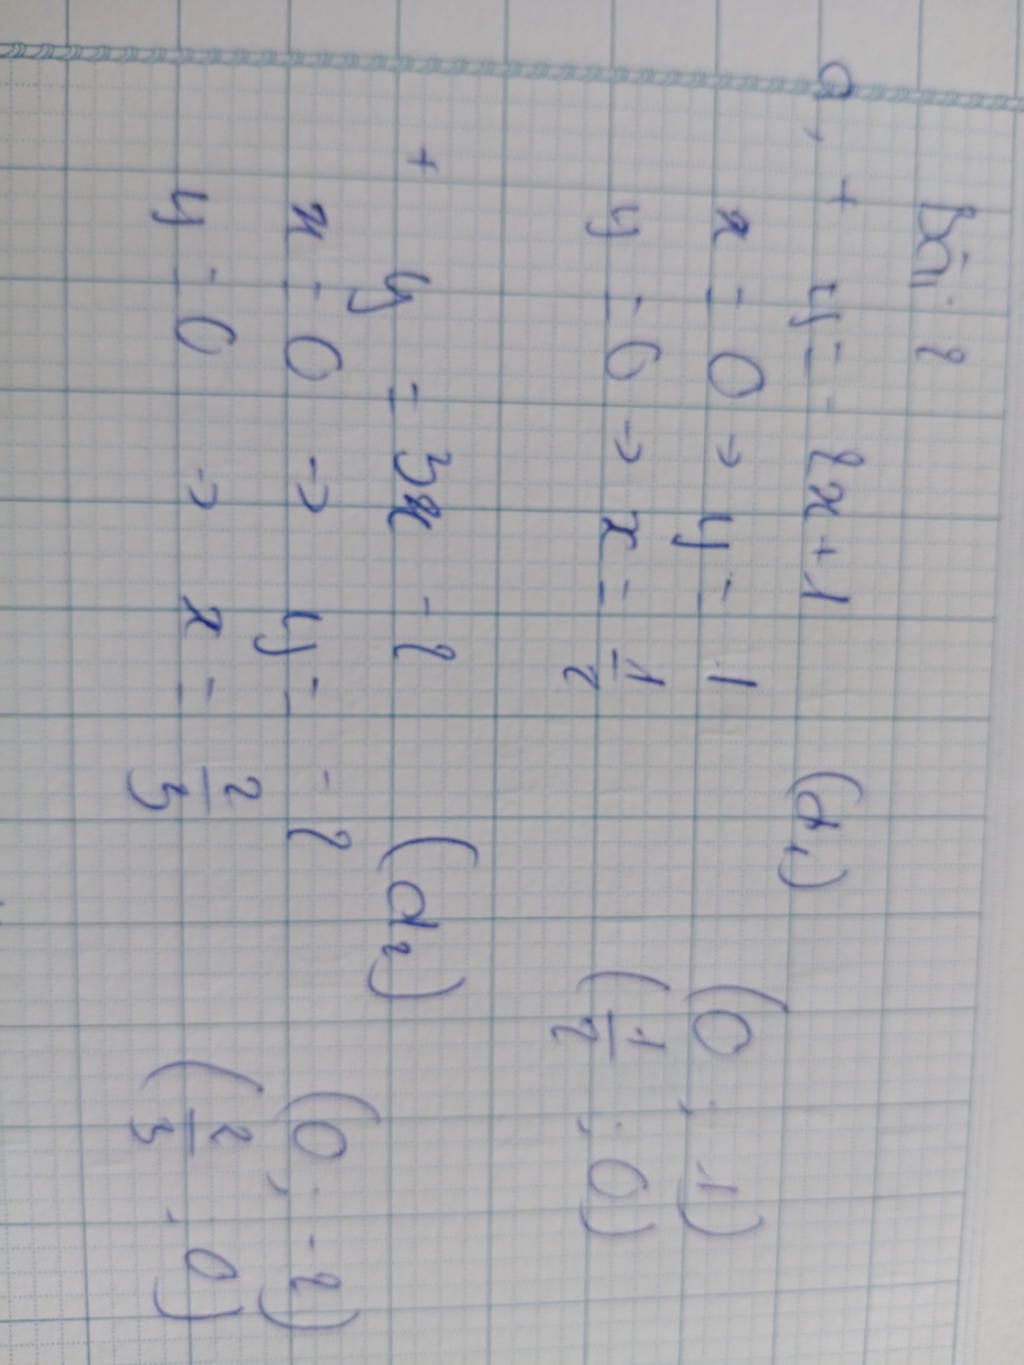 Bài 2
a, + y = - 2x + 1 (d₁)
x = 0 → y = 1 (0 ; 1)
y = 0 → x = 1/2 (1/2 ; 0)
+ y = 3x - 2 (d₂)
x = 0 → y = - 2 (0 ; - 2)
y = 0 → x = 2/3 (2/3 ; 0)